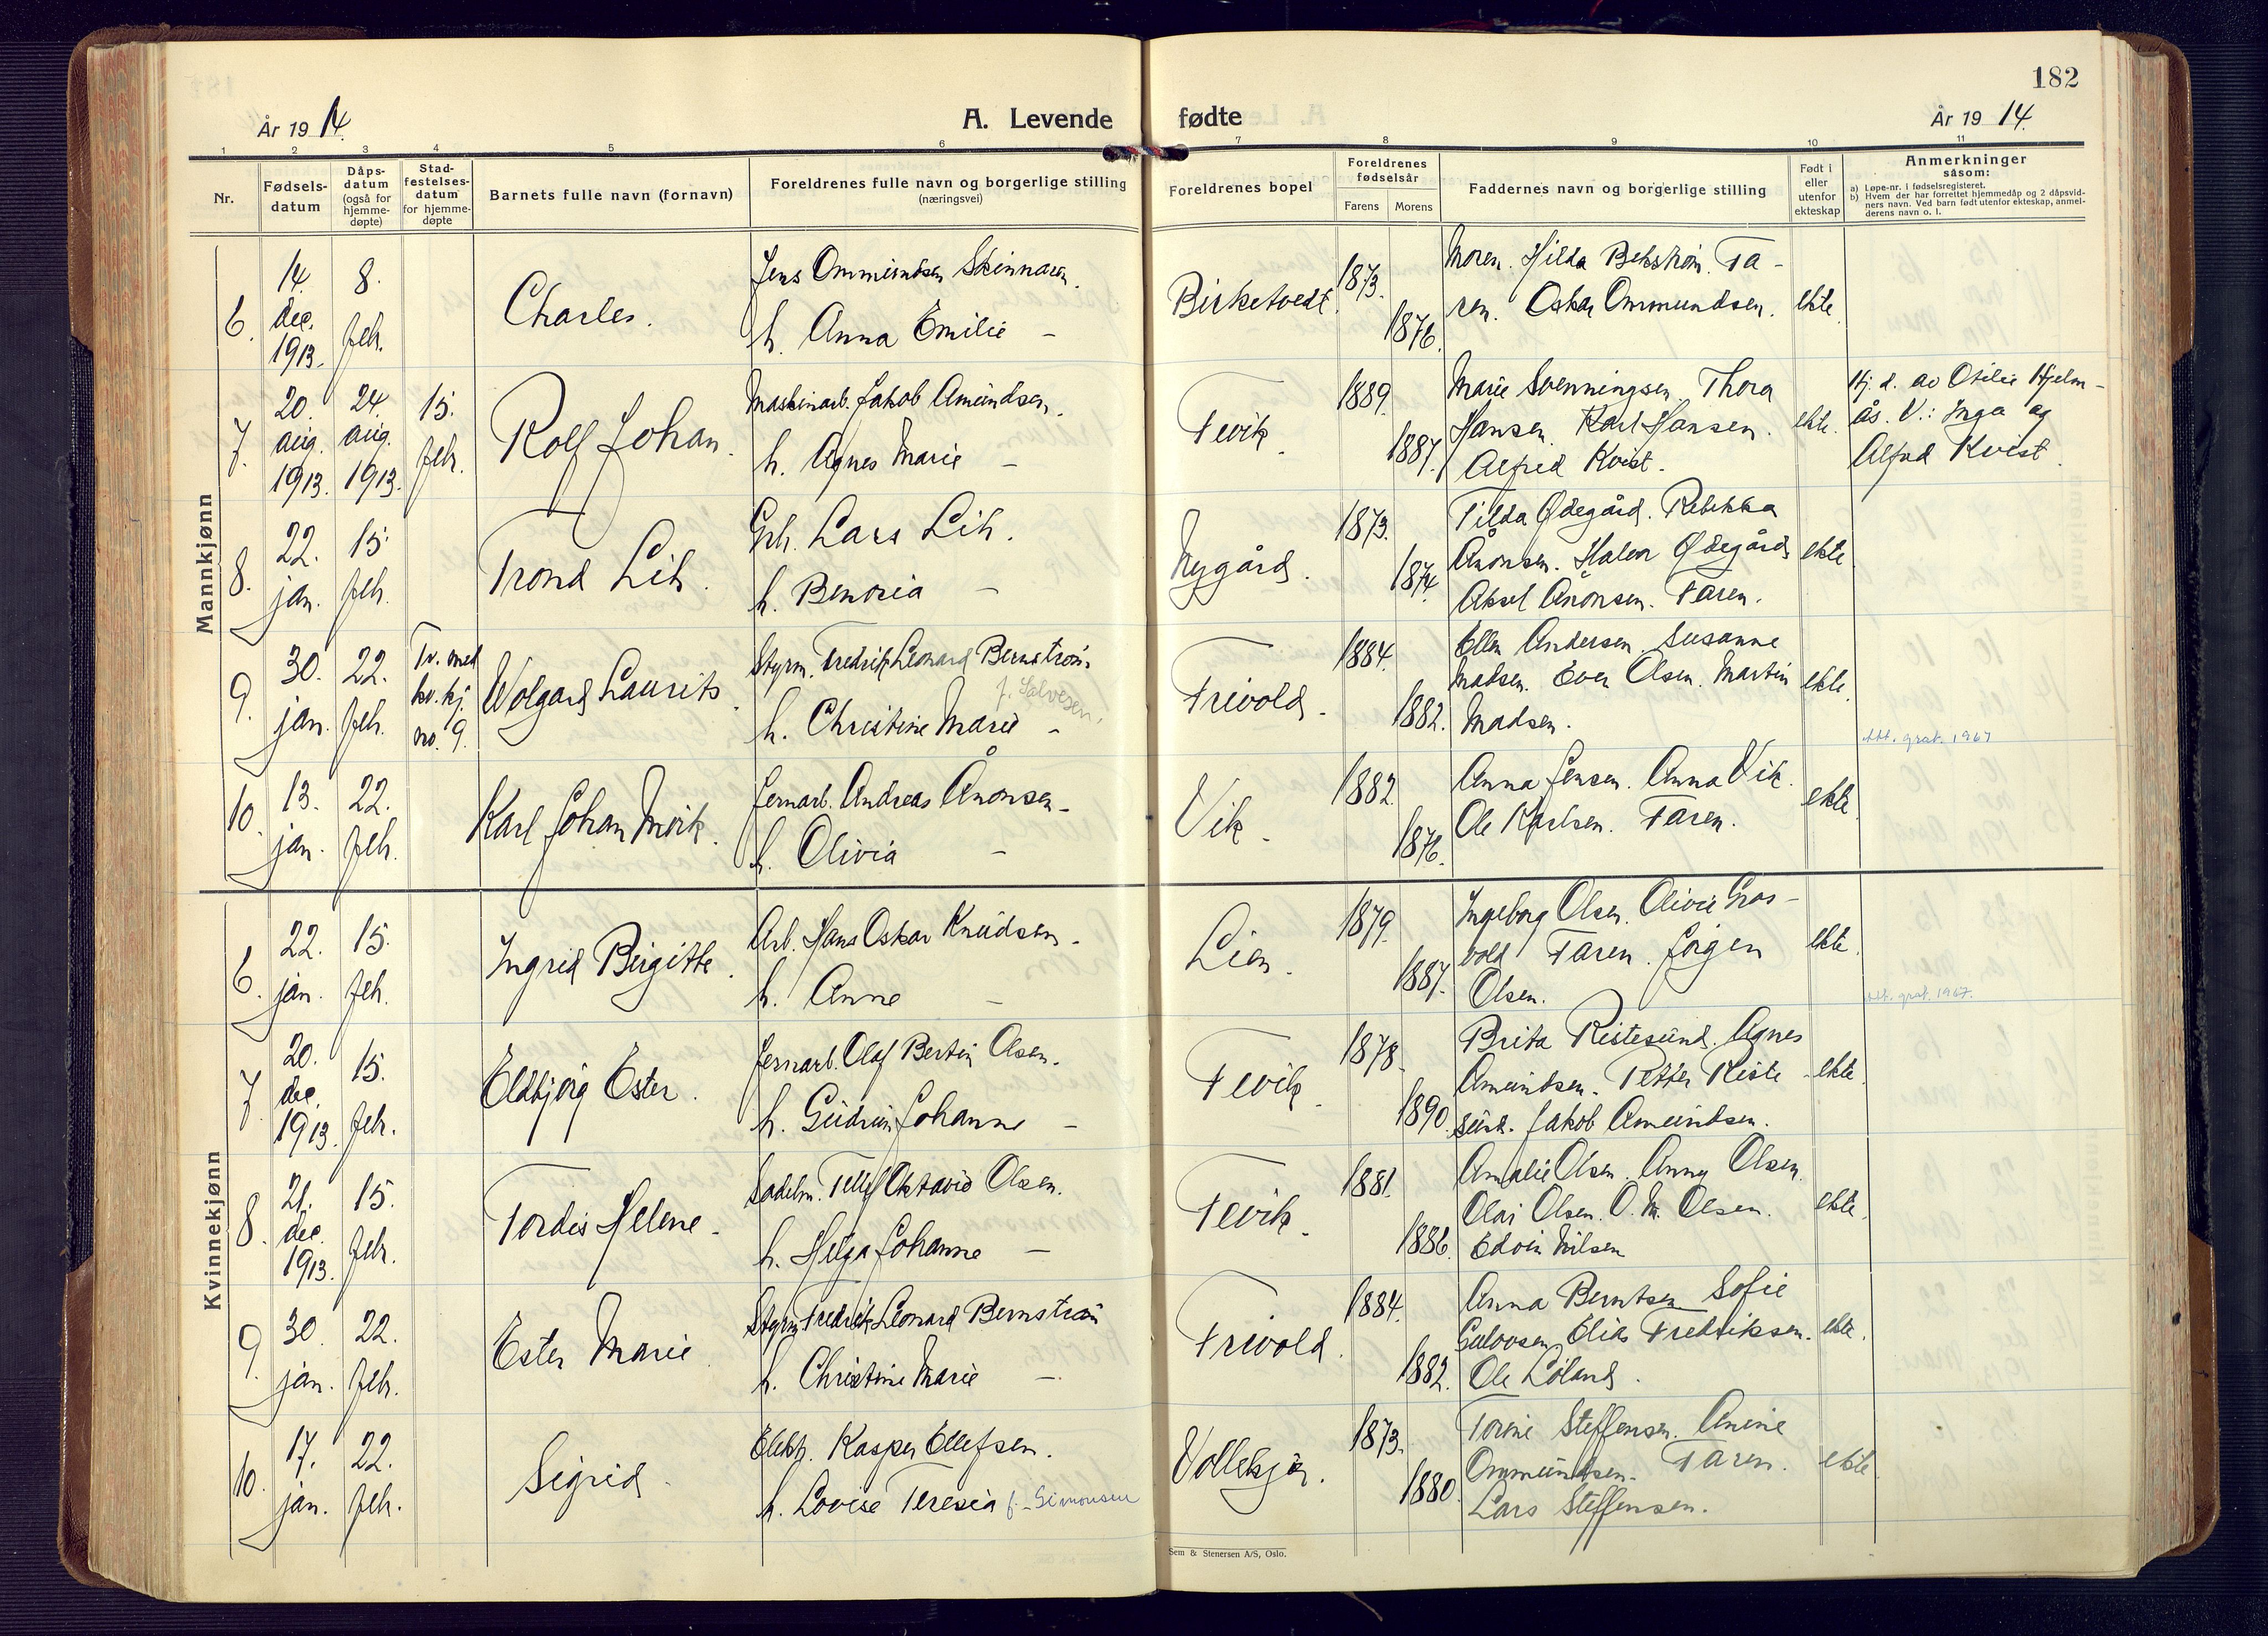 182
År 19 14.
A. Levende
fødte
År 19 14.
1 2 3 4 5 6 7 8 9 10 11
Nr.
Fødsels-
datum
Dåps-
datum
(også for
hjemme-
døpte)
Stad-
festelses-
datum
for hjemme-
døpte
Barnets fulle navn (fornavn)
Foreldrenes fulle navn og borgerlige stilling
(næringsvei)
Foreldrenes bopel
Foreldrenes
fødselsår
Farens Morens
Faddernes navn og borgerlige stilling
Født i
eller
utenfor
ekteskap
Anmerkninger
såsom:
a) Løpe-nr. i fødselsregisteret.
b) Hvem der har forrettet hjemmedåp og 2 dåpsvid-
ners navn. Ved barn født utenfor ekteskap, anmel-
derens navn o. l.
Mannkjønn
6.
14.
dec.
1913.
8.
febr.
Charles.
Jens Ommundsen Skinnaren.
h. Anna Emilie -
Birketvedt.
1873.
1876.
Moren. Hilda Bekstrøm. Fa-
ren. Oskar Ommundsen.
ekte.
7.
20.
aug.
1913.
24.
aug.
1913.
15.
febr.
Rolf Johan.
Maskinarb. Jakob Amundsen.
h. Agnes Marie -
Fevik.
1889.
1887.
Marie Svenningsen. Thora
Hansen. Karl Hansen.
Alfred Kvist.
ekte.
Hj. d. av Otilie Hjelm-
ås. V.: Inga og
Alfred Kvist.
8.
22.
jan.
15.
febr.
Trond Lih.
Grb. Lars Lih.
h. Benoria -
Nygård.
1873.
1874.
Tilda Ødegård. Rebekka
Ånonsen. Halvor Ødegård.
Aksel Ånonsen. Faren.
ekte
9.
30.
jan.
22.
febr.
Tv. med
kv. kj.
no. 9.
Wolgard Laurits.
Styrm. Fredrik Leonard Bernstrøm
f. Salvesen.
h. Christine Marie -
Frivold.
1884.
1882.
Ellen Andersen. Susanne
Madsen. Even Olsen. Martin
Madsen.
ekte.
att. grat. 1967
10.
13.
jan.
22.
febr.
Karl Johan Mørk.
Jernarb. Andreas Ånonsen -
h. Olivia -
Vik.
1882.
1876.
Anna Jensen. Anna Vik.
Ole Karlsen. Faren.
ekte
Kvinnekjønn
6.
22.
jan.
15.
febr.
Ingrid Birgitte.
Arb. Hans Oskar Knudsen.
h. Anne -
Lien.
1879.
1887.
Ingeborg Olsen. Olivie Gros-
vold Faren. Jørgen
Olsen.
ekte.
att. grat. 1967.
7.
20.
dec.
1913.
15.
febr.
Eldbjørg Ester.
Jernarb. Olaf Bertin Olsen.
h. Gudrun Johanne -
Fevik.
1878.
1890.
Brita Ristesund. Agnes
Amundsen. Petter Riste-
sund. Jakob Amundsen.
ekte.
8.
21.
dec.
1913.
15.
febr.
Tordis Helene.
Sadelm. Tellef Oktavio Olsen.
h. Helga Johanne -
Fevik.
1881.
1886.
Amalie Olsen. Anny Olsen.
Olai Olsen. O. M. Olsen.
Edvin Nilsen
ekte.
9.
30.
jan.
22.
febr.
Ester Marie.
Styrm. Fredrik Leonard Bernstrøm
h. Christine Marie -
Frivold.
1884.
1882.
Anna Berntsen. Sofie
Gulovsen. Elias Fredriksen.
Ole Løland.
ekte.
10.
17.
jan.
22.
febr.
Sigrid.
Elektr. Kasper Ellefsen.
h. Lovise Teresia f. Simonsen
Vollekjær.
1873.
1880.
Torine Steffensen. Anine
Ommundsen. Faren.
Lars Steffensen.
ekte.
Sem & Stenersen A/S, Oslo.